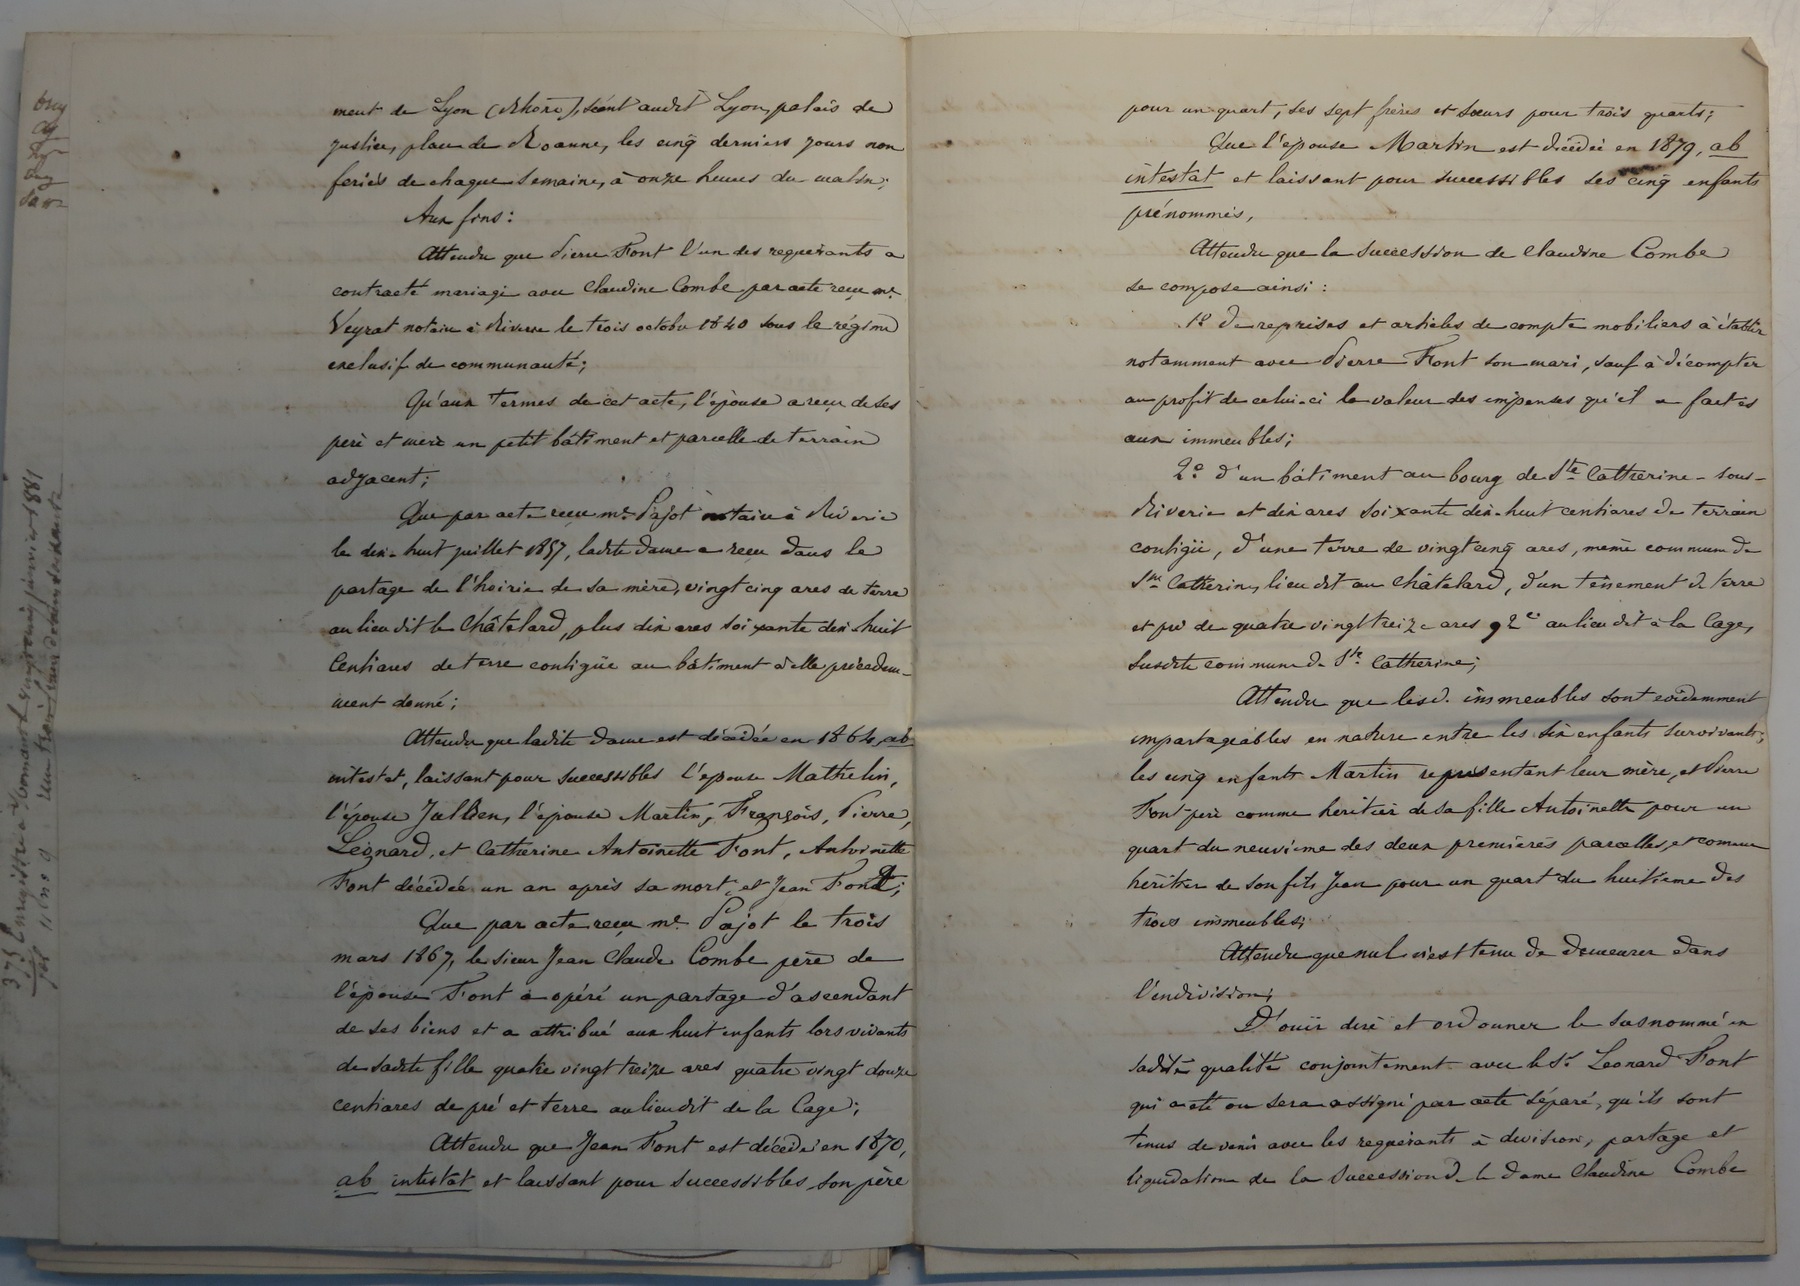 ment de Lyon (Rhône), séant audit Lyon, palais de
justice, place de Roanne, les cinq derniers jours non
feriés de chaque semaine, à onze heures du matin;
Aux fins:
Attendu que Pierre Font l'un des requérants a
contracté mariage avec Claudine Combe par acte reçu Me
Veyrat notaire à Riverie le trois octobre 1840 sous le régime
exclusif de communauté;
Qu'aux termes de cet acte, l'épouse a reçu de ses
père et mère un petit bâtiment et parcelle de terrain
adjacent;
Que par acte reçu Me Pajot notaire à Riverie
le dix-huit juillet 1857, ladite dame a reçu dans le
partage de l'hoirie de sa mère, vingt cinq ares de terre
au lieu dit le Châtelard, plus dix ares soixante dix-huit
Centiares de terre contigüe au bâtiment à elle précédem-
ment donné;
Attendu que ladite dame est décédée en 1864, ab
intestat, laissant pour successibles l'épouse Mathelin,
l'épouse Jullien, l'épouse Martin, François, Pierre,
Léonard, et Catherine Antoinette Font, Antoinette
Font décédée un an après sa mort, et Jean Font;
Que par acte reçu Me Pajot le trois
mars 1867, le sieur Jean Claude Combe père de
l'épouse Font a opéré un partage d'ascendant
de ses biens et a attribué aux huit enfants lors vivants
de sadite fille quatre vingt treize ares quatre vingt douze
centiares de pré et terre au lieu dit de la Cage;
Attendu que Jean Font est décédé en 1870,
ab intestat et laissant pour successibles son père
pour un quart, ses sept frères et sœurs pour trois quarts;
Que l'épouse Martin est décédée en 1879, ab
intestat et laissant pour successibles ses cinq enfants
prénommés,
Attendu que la succession de Claudine Combe
se compose ainsi:
1o de reprises et articles de compte mobiliers à établir
notamment avec Pierre Font son mari, sauf à décompter
au profit de celui-ci la valeur des impenses qu'il a faites
aux immeubles;
2o d'un bâtiment au bourg de Ste Catherine-sous-
Riverie et dix ares soixante dix-huit centiares de terrain
contigüe, d'une terre de vingt cinq ares, même commune de
Ste Catherine, lieu dit au Châtelard, d'un tènement de terre
et pré de quatre vingt treize ares 92 c au lieu dit à la Cage,
susdite commune de Ste Catherine;
Attendu que lesd. immeubles sont évidemment
impartageables en nature entre les six enfants survivants,
les cinq enfants Martin représentant leur mère, et Pierre
Font père comme héritier de sa fille Antoinette pour un
quart du neuvième des deux premières parcelles, et comme
héritier de son fils Jean pour un quart du huitième des
trois immeubles;
Attendu que nul n'est tenu de demeurer dans
l'indivision;
D'ouïr dire et ordonner le susnommé en
sadite qualité conjointement avec le Sr Leonard Font
qui a été ou sera assigné par acte séparé, qu'ils sont
tenus de venir avec les requérants à division, partage et
liquidation de la succession de la dame Claudine Combe
375 Enregistré à Mornant janvier 1881